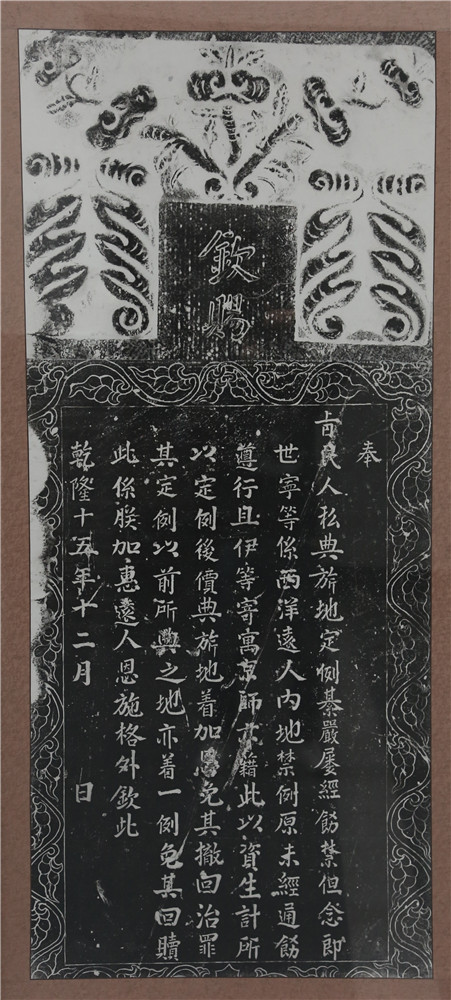 欽賜
奉
旨民人私典旂地定例綦嚴屢經飭禁但念郎
世寧等係西洋遠人内地禁例原未經通飭
遵行且伊等寄寓京師亦藉此以資生計所
以定例後價典旂地着加恩免其撤回治罪
其定例以前所典之地亦着一例免其回贖
此係朕加惠遠人恩施格外欽此
乾隆十五年十二月 日